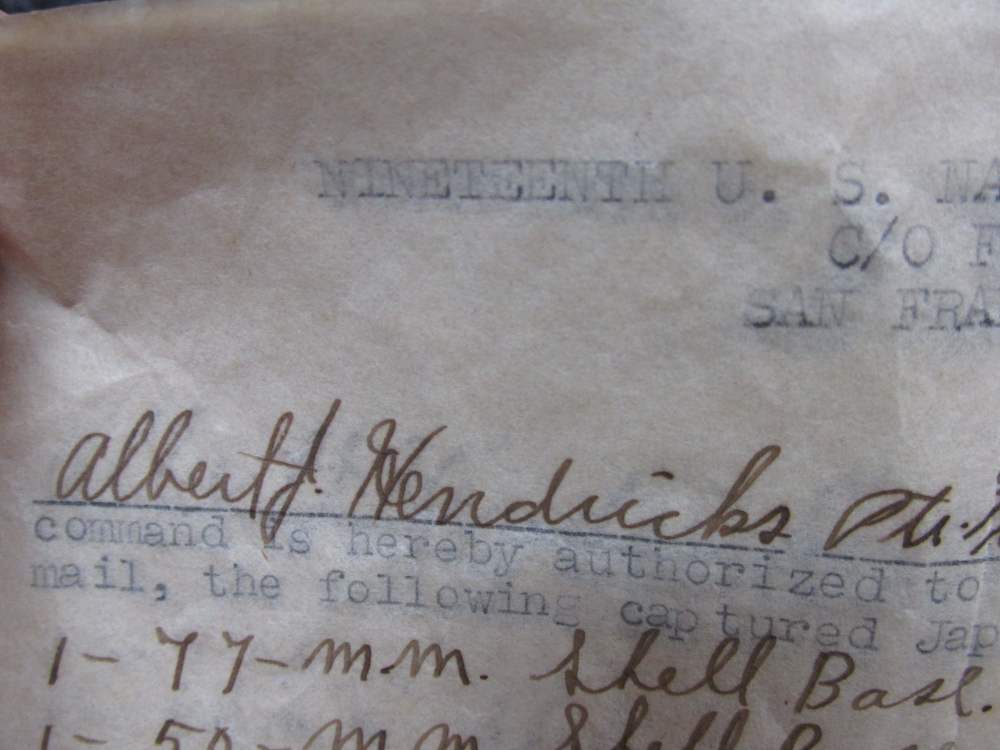 NINETEENTH U. S. NA
C/O F
SAN FRA
Albert J. Hendricks
command is hereby authorized to
mail, the following captured Jap
1- 77-m.m. Shell Base.
1- 50-m.m. Shell